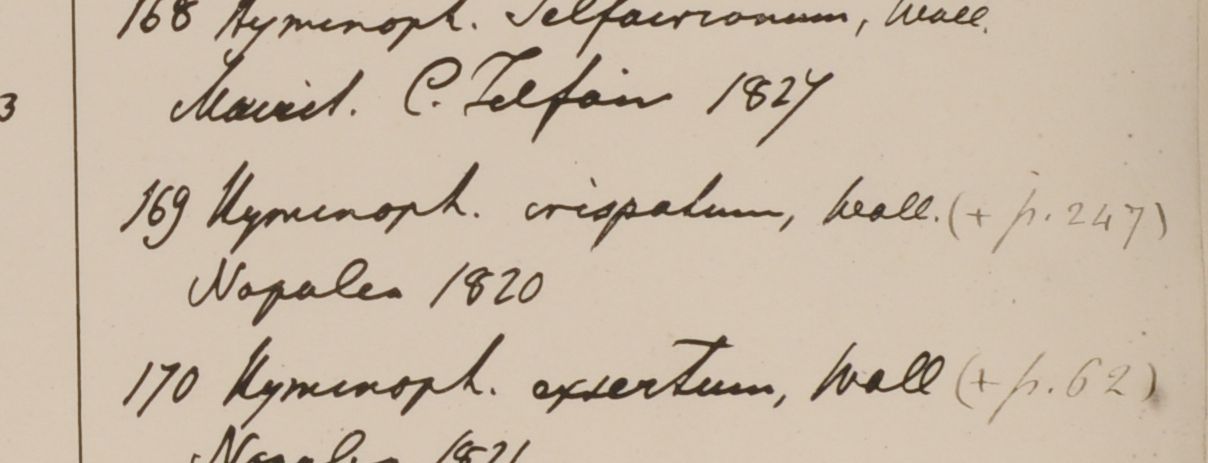 168 Hymenoph. Telfairianum, Wall.
3
Maurit. C. Telfair 1827
169 Hymenoph. crispatum, Wall. (+ p. 247)
Napalea 1820
170 Hymenoph. exsertum, Wall (+ p. 62)
Napalea 1821